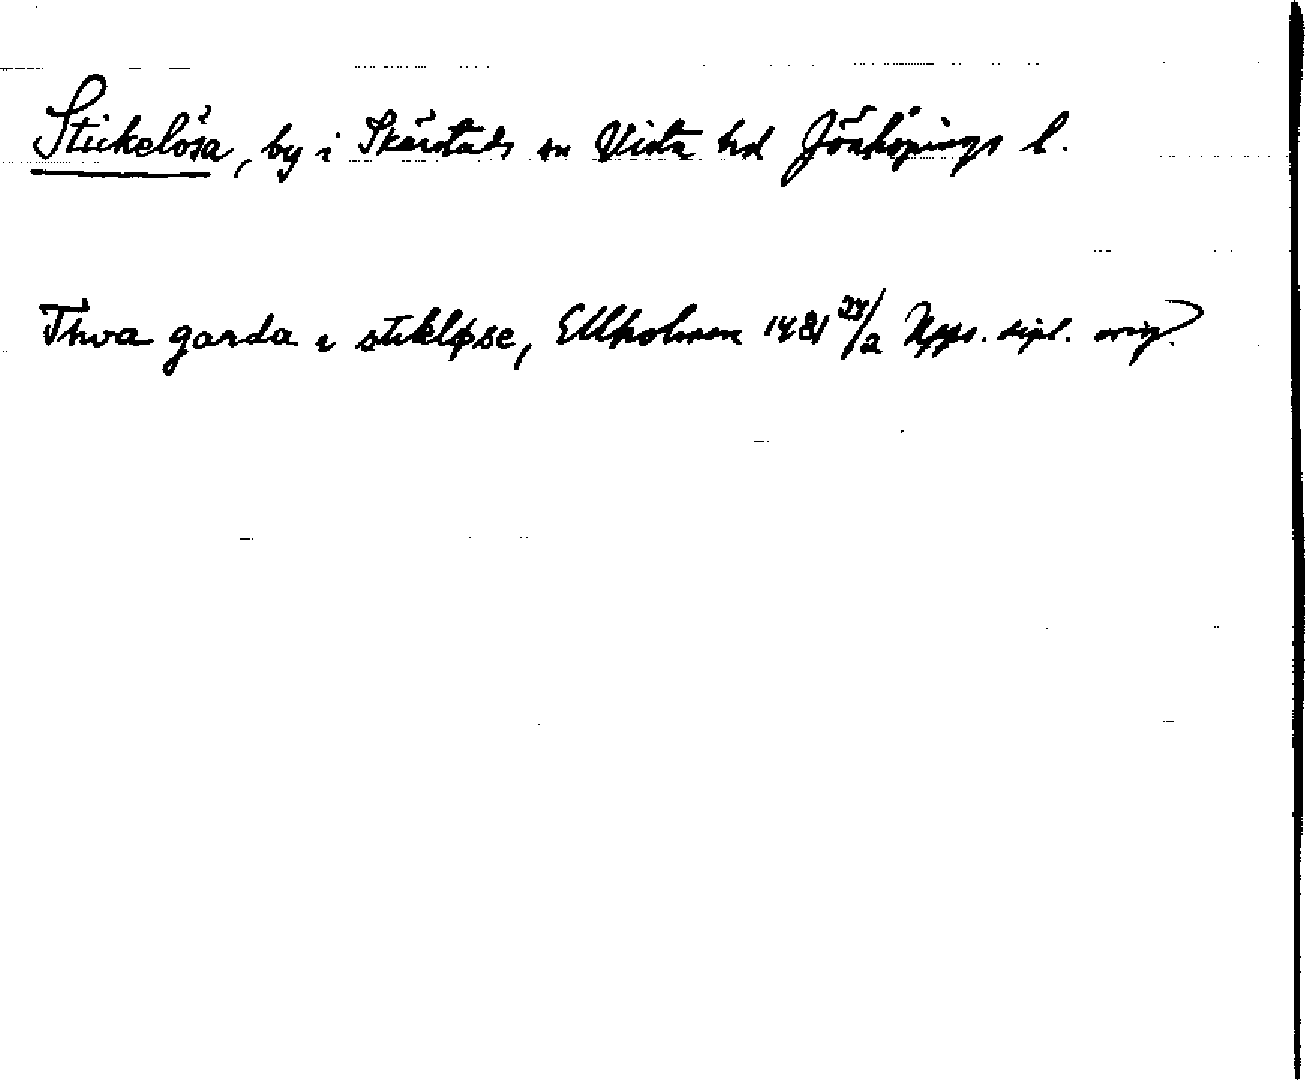 Stickelösa, by i Skärstads sn Vista hd Jönköpings l.
Thva garda i stikløse, Ellholmen 1481 24/2 Upps. dipl. orig.